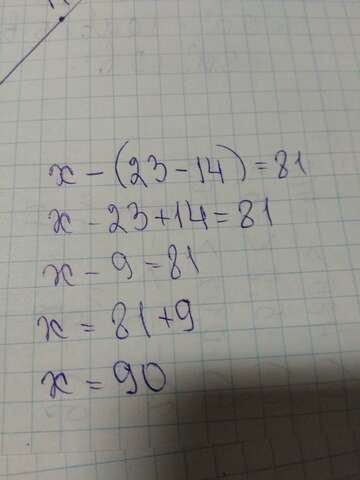 x - (23 - 14) = 81
x - 23 + 14 = 81
x - 9 = 81
x = 81 + 9
x = 90